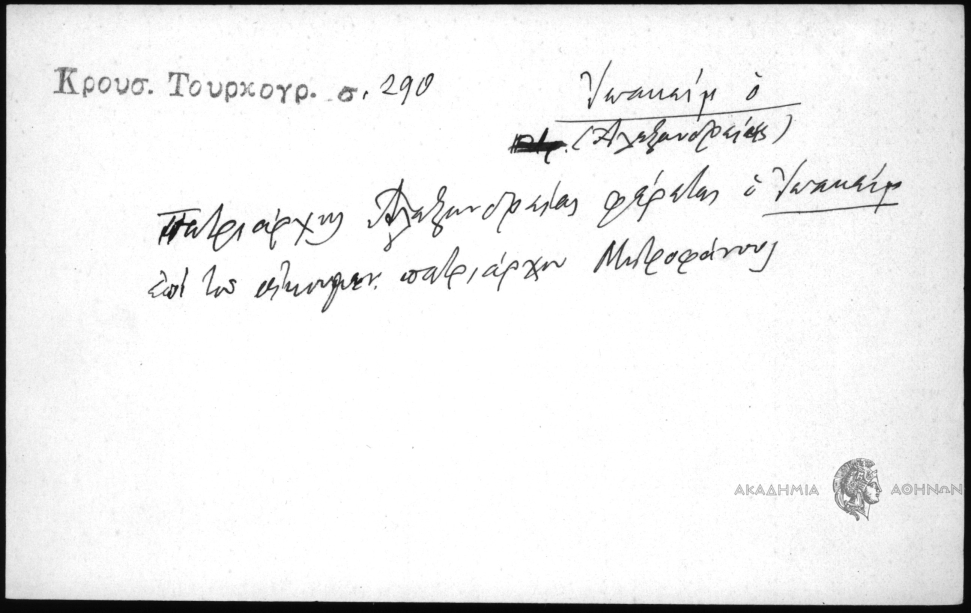 Κρουσ. Τουρκογρ. σ. 290
Ἰωακείμ ὁ
(Ἀλεξανδρείας)
Πατριάρχης Ἀλεξανδρείας φέρεται ὁ Ἰωακείμ
ἐπί τοῦ οἰκουμεν. πατριάρχου Μητροφάνους
ΑΚΑΔΗΜΙΑ ΑΘΗΝΩΝ